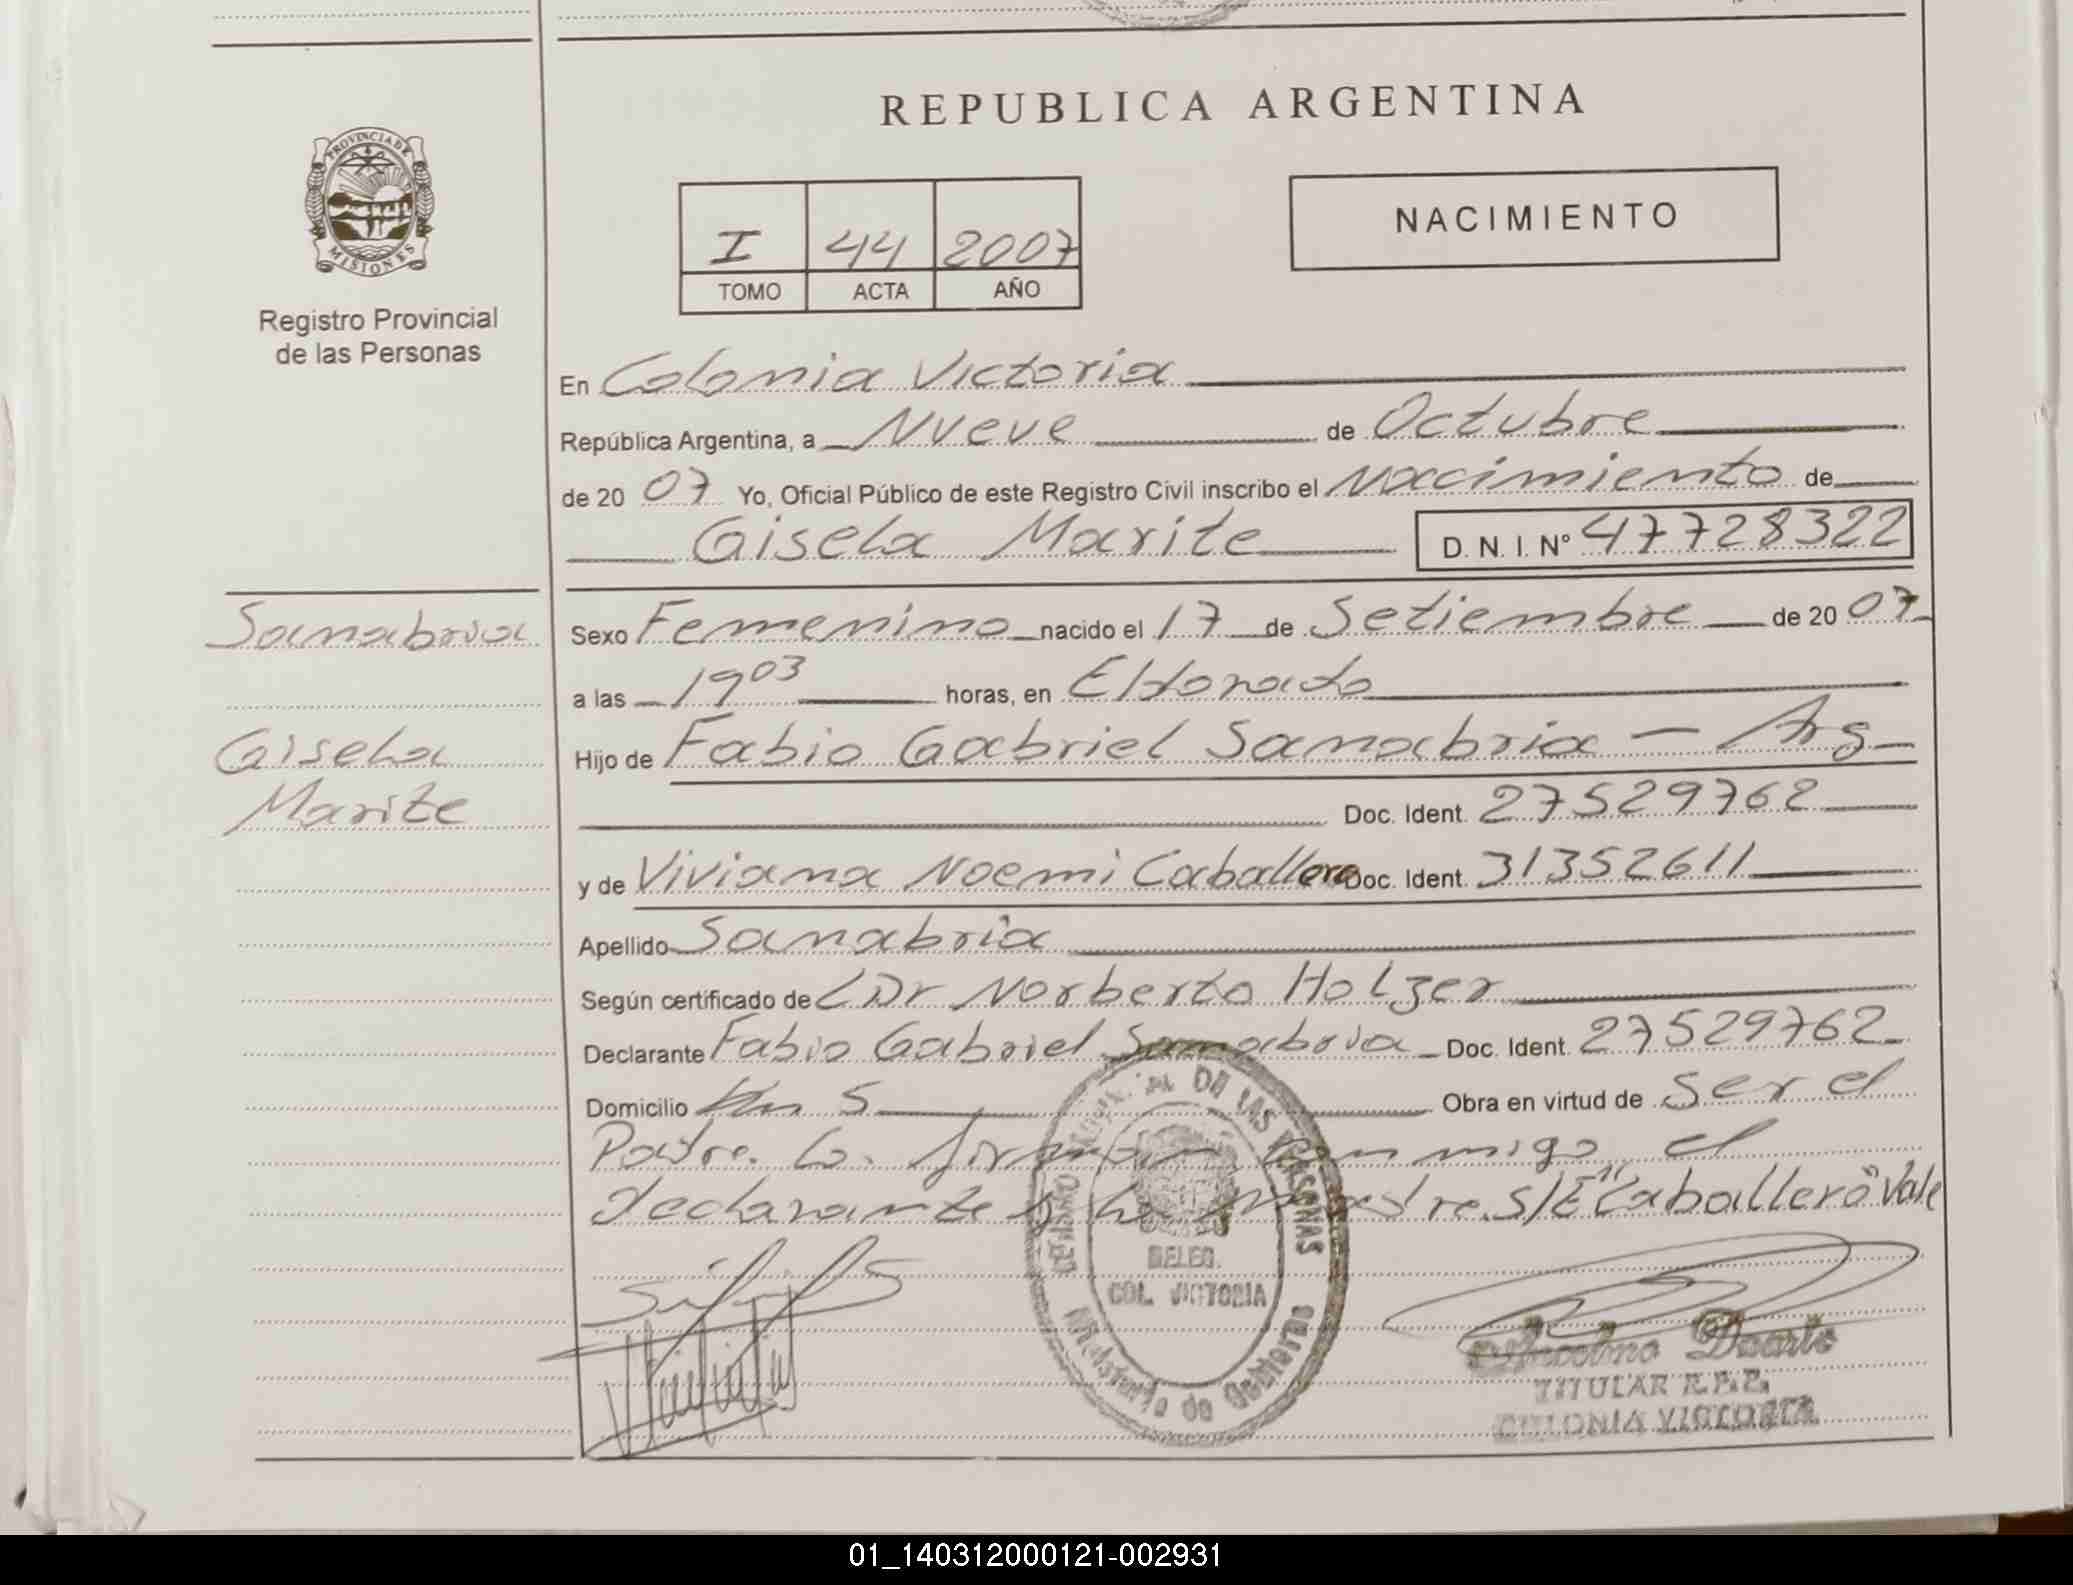 REPUBLICA ARGENTINA
PROVINCIA DE
MISIONES
Registro Provincial
de las Personas
I 44 2007
TOMO ACTA AÑO
NACIMIENTO
En Colonia Victoria
República Argentina, a Nueve de Octubre
de 20 07 Yo, Oficial Público de este Registro Civil inscribo el Nacimiento de
Gisela Marite D. N. I. Nº 47728322
Sanabria
Gisela
Marite
Sexo Femenino nacido el 17 de Setiembre de 20 07
a las 19 03 horas, en Eldorado
Hijo de Fabio Gabriel Sanabria - Arg
Doc. Ident. 27529762
y de Viviana Noemi Caballero Doc. Ident. 31352611
Apellido Sanabria
Según certificado de Dr Norberto Holzer
Declarante Fabio Gabriel Sanabria Doc. Ident. 27529762
Domicilio Km 5 Obra en virtud de ser el
Padre. Lo firman conmigo el
declarante y la madre. S/E "Caballero" Vale
DE LAS PERSONAS
DELEG.
COL. VICTORIA
Ministerio de Gobierno
Duarte
TITULAR R.P.P.
COLONIA VICTORIA
01_140312000121-002931